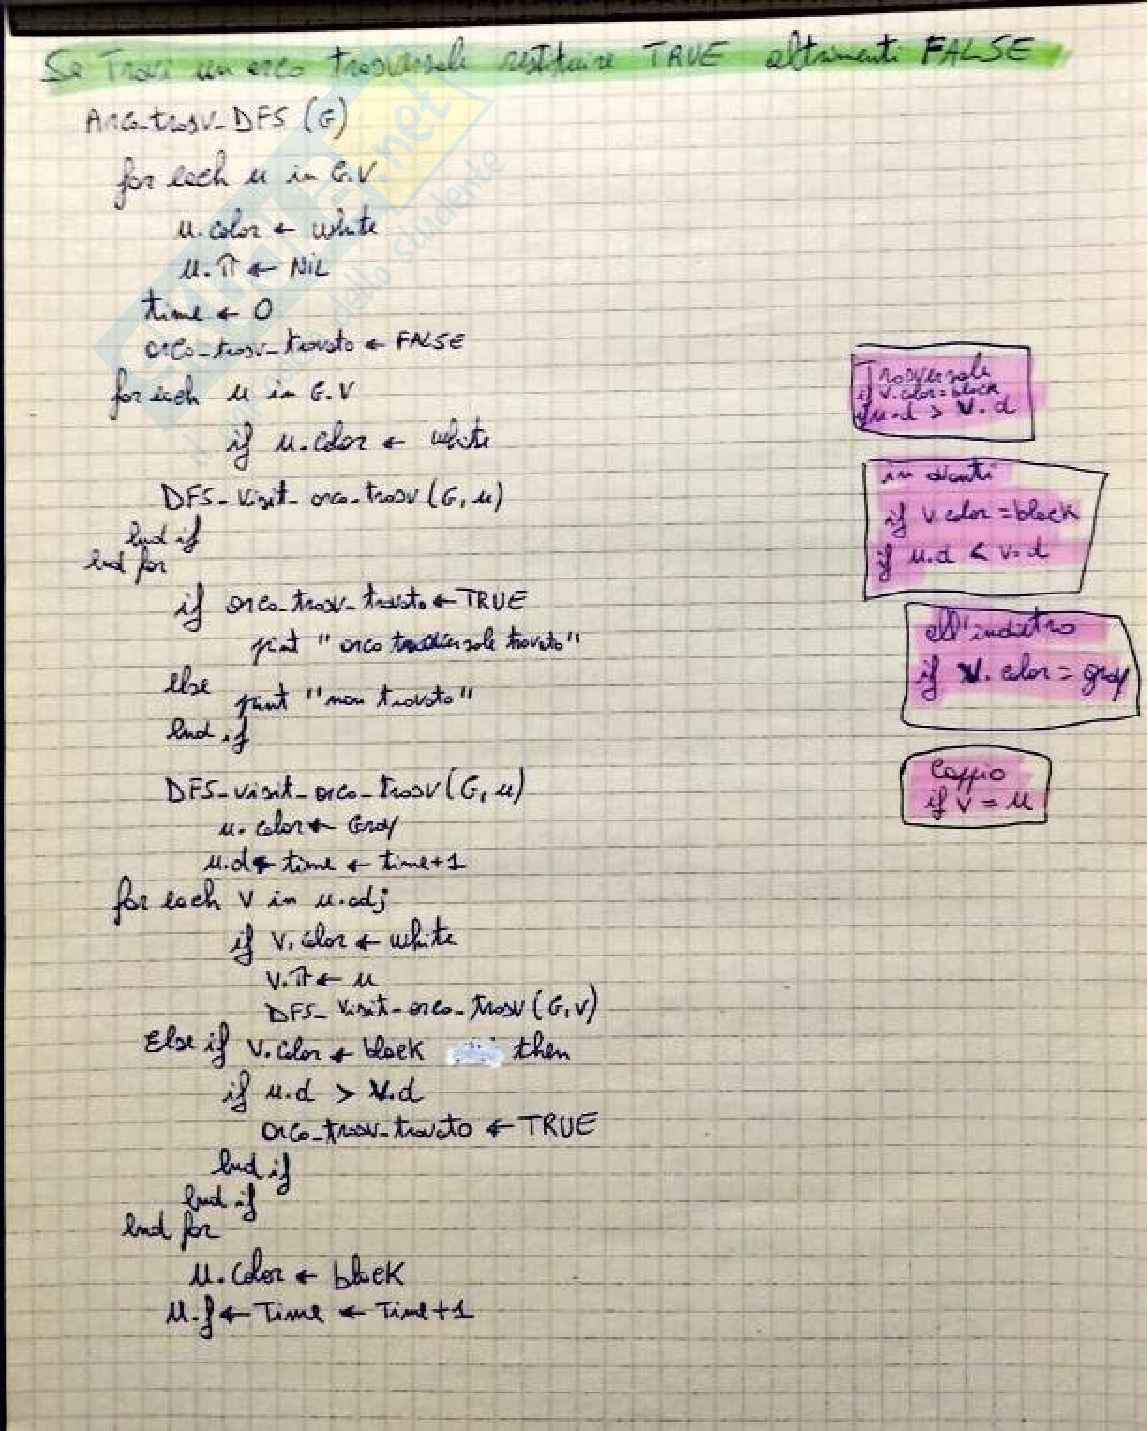 Se Trovi un arco trasversale restituire TRUE altrimenti FALSE
Arco_trasv_DFS (G)
for each u in G.V
u.color ← white
u.π ← NIL
time ← 0
arco_trasv_trovato ← FALSE
for each u in G.V
if u.color ← white
DFS_visit_arco_trasv (G, u)
End if
End for
if arco_trasv_trovato ← TRUE
print " arco trasversale trovato"
Else
print "non trovato"
End if
DFS_visit_arco_trasv (G, u)
u.color ← Gray
u.d ← time ← time+1
for each v in u.adj
if v.color ← white
v.π ← u
DFS_visit_arco_trasv (G, v)
Else if v.color ← black then
if u.d > v.d
arco_trasv_trovato ← TRUE
End if
End if
End for
u.color ← black
u.f ← Time ← Time+1
Trasversale
if v.color=black
if u.d > v.d
in avanti
if v.color =black
if u.d < v.d
all'indietro
if v.color = gray
Cappio
if v = u
.net
dello studente